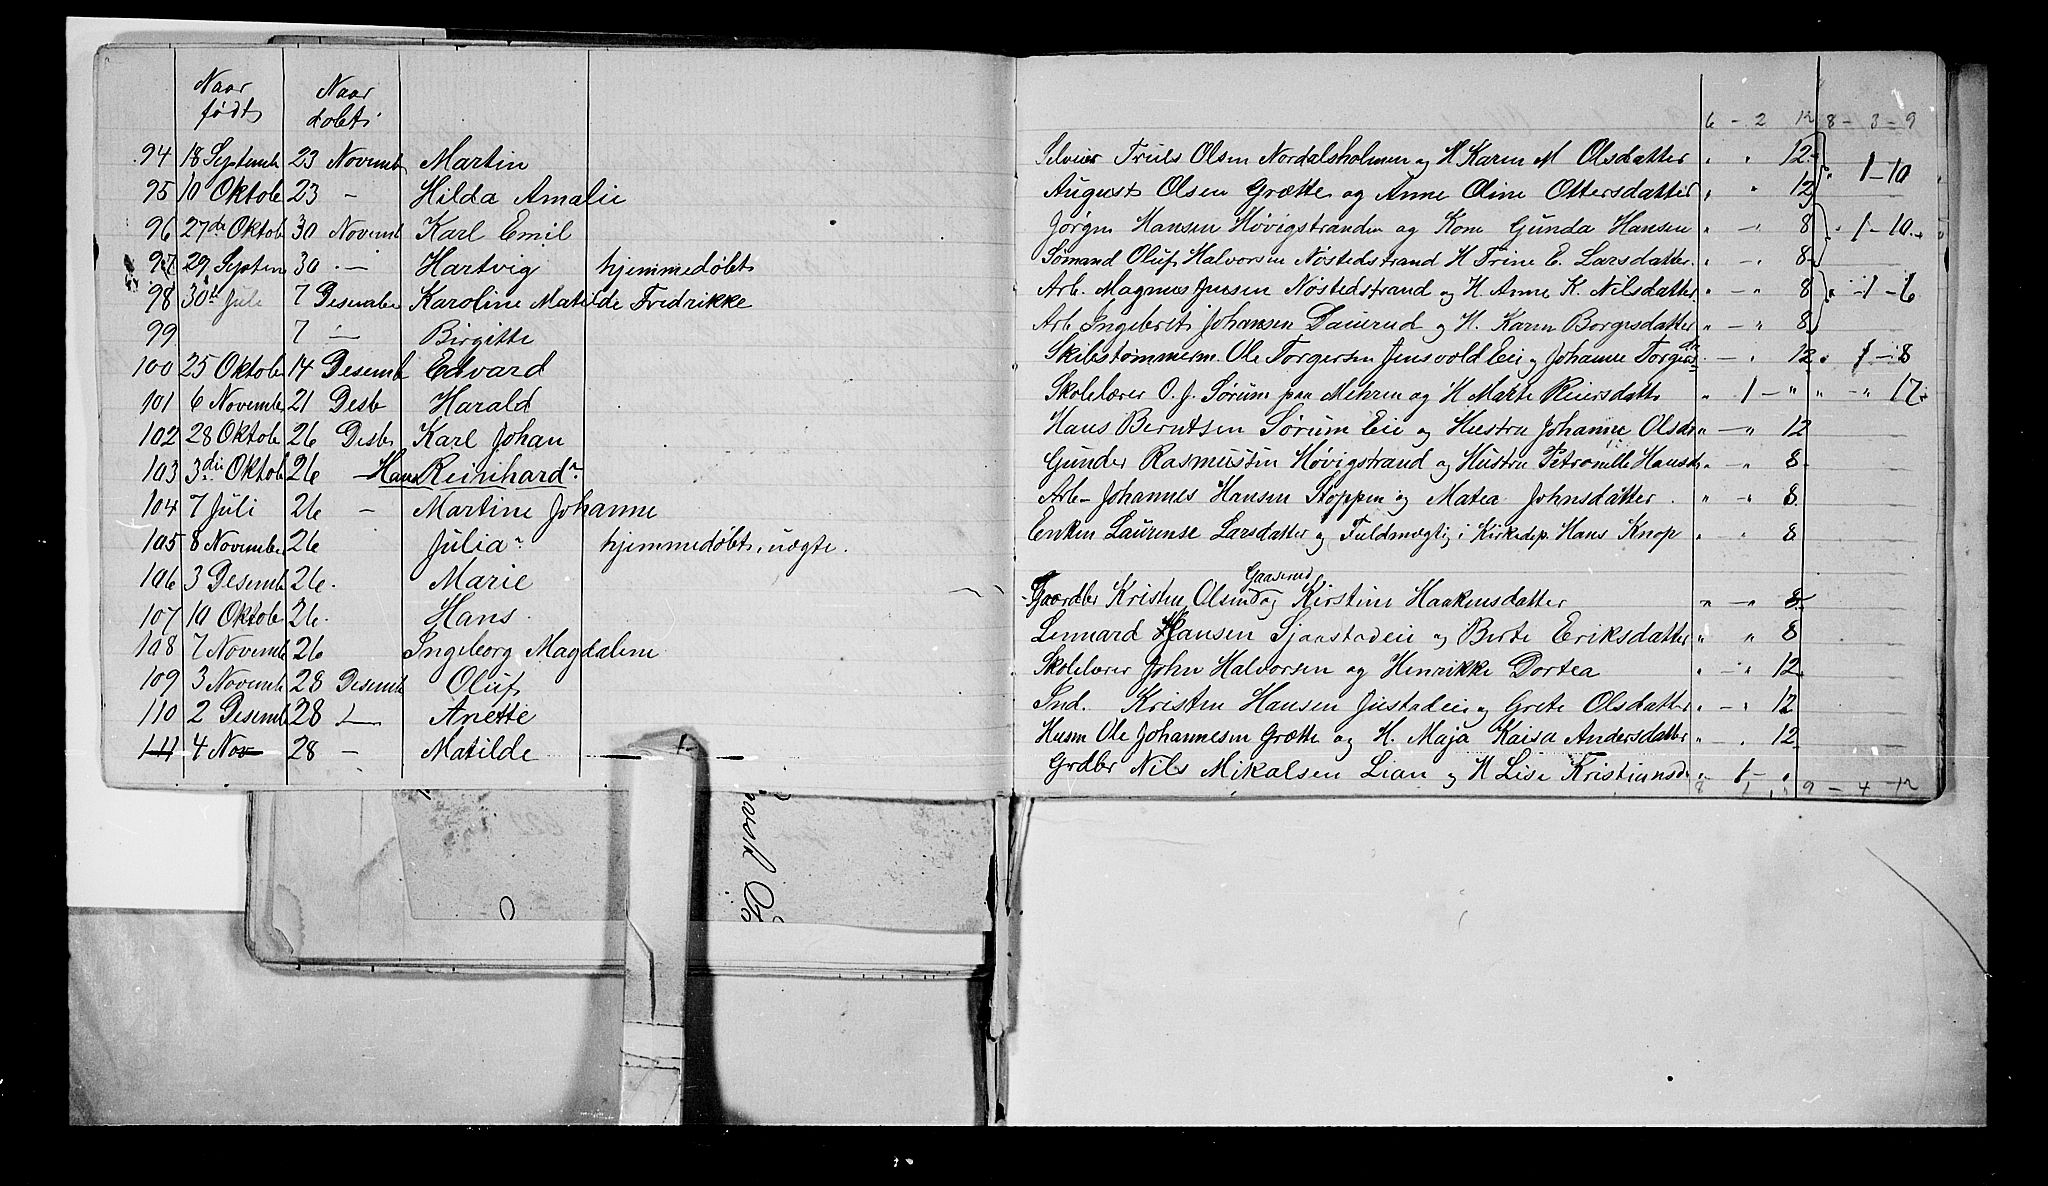 Naar født
Naar døbt
6 - 2 12 8 - 3 - 9
94 18 Septemb 23 Novemb Martin
Selveier Truls Olsen Nordalsholmen og H Karen M Olsdatter " " 12
" 1 - 10
95 10 Oktob 23 - Hilda Amalie
August Olsen Grætte og Anne Oline Ottersdatter " " 12
96 27de Oktob 30 Novemb Karl Emil
Jørgen Hansen Høvigstranden og Kone Gunda Hansen " - " 8
" 1 - 10
97 29 Septem 30 - Hartvig hjemmedøbt
Sømand Oluf Halvorsen Nøstedstrand H Trine E. Larsdatter " - " 8
98 30te Juli 7 Desember Karoline Matilde Fredrikke
Arb. Magnus Jensen Nøstedstrand og H Anne K. Nilsdatter " - " 8 " - 1 - 6
99 7 - Birgitte
Arb Ingebret Johansen Daurud og H. Karen Borgesdatter " - " 8
100 25 Oktob 14 Desemb Edvard
Skibstømmerm. Ole Torgersen Jensvold Eie og Johanne Torgers dtr " - " 12 " 1 - 8
101 6 Novemb 21 Desb Harald
Skolelærer O. J. Sørum paa Mehren og H Marte Reiersdatt " 1 - " " - " 17
102 28 Oktob 26 Desbr Karl Johan
Hans Berntsen Sørum Eie og Hustru Johanne Olsdr " - " 12
103 3die Oktob 26 - Hans Reinihard
Gunder Rasmussen Høvigstrand og Hustru Petronille Hansdr " - " 8
104 7 Juli 26 - Martine Johanne
Arb - Johannes Hansen Stoppen og Matea Johnsdatter " - " 8
105 8 November 26 Julia hjemmedøbt, uægte.
Enken Laurense Larsdatter og Fuldmægtig i Kirkedep. Hans Knop " - " 8
106 3 Desemb 26. Marie
Gaaserud
Gaardbr Kristen Olsen og Kirstine Haakensdatter " - " 8
107 10 Oktob 26. Hans.
Lennard Hansen Sjaastadeie og Berte Eriksdatter " " 8
108 7 Novemb 26 Ingeborg Magdalene
Skolelærer John Halvorsen og Henrikke Dortea " - " 12
109 3 Novemb 28 Desemb Oluf
Ind. Kristen Hansen Justadeie og Grete Olsdatter " - " 12
110 2 Desemb 28 - Anette
Husm Ole Johannesen Grætte og H. Maja Kaisa Andersdatter " - " 12
111 4 Nov 28 - Matilde
Grdbr Nils Mikalsen Lian og H Lise Kristiansd " 1 - "
8 1 " 9 - 4 - 12